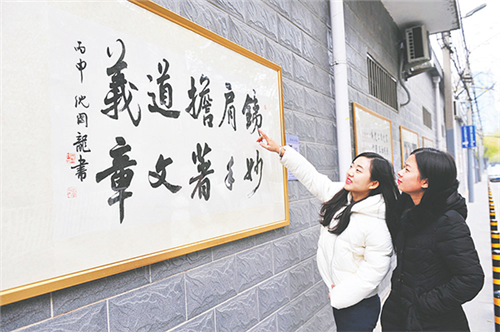 鐵肩擔道義
妙手著文章
丙申 沈国龍書